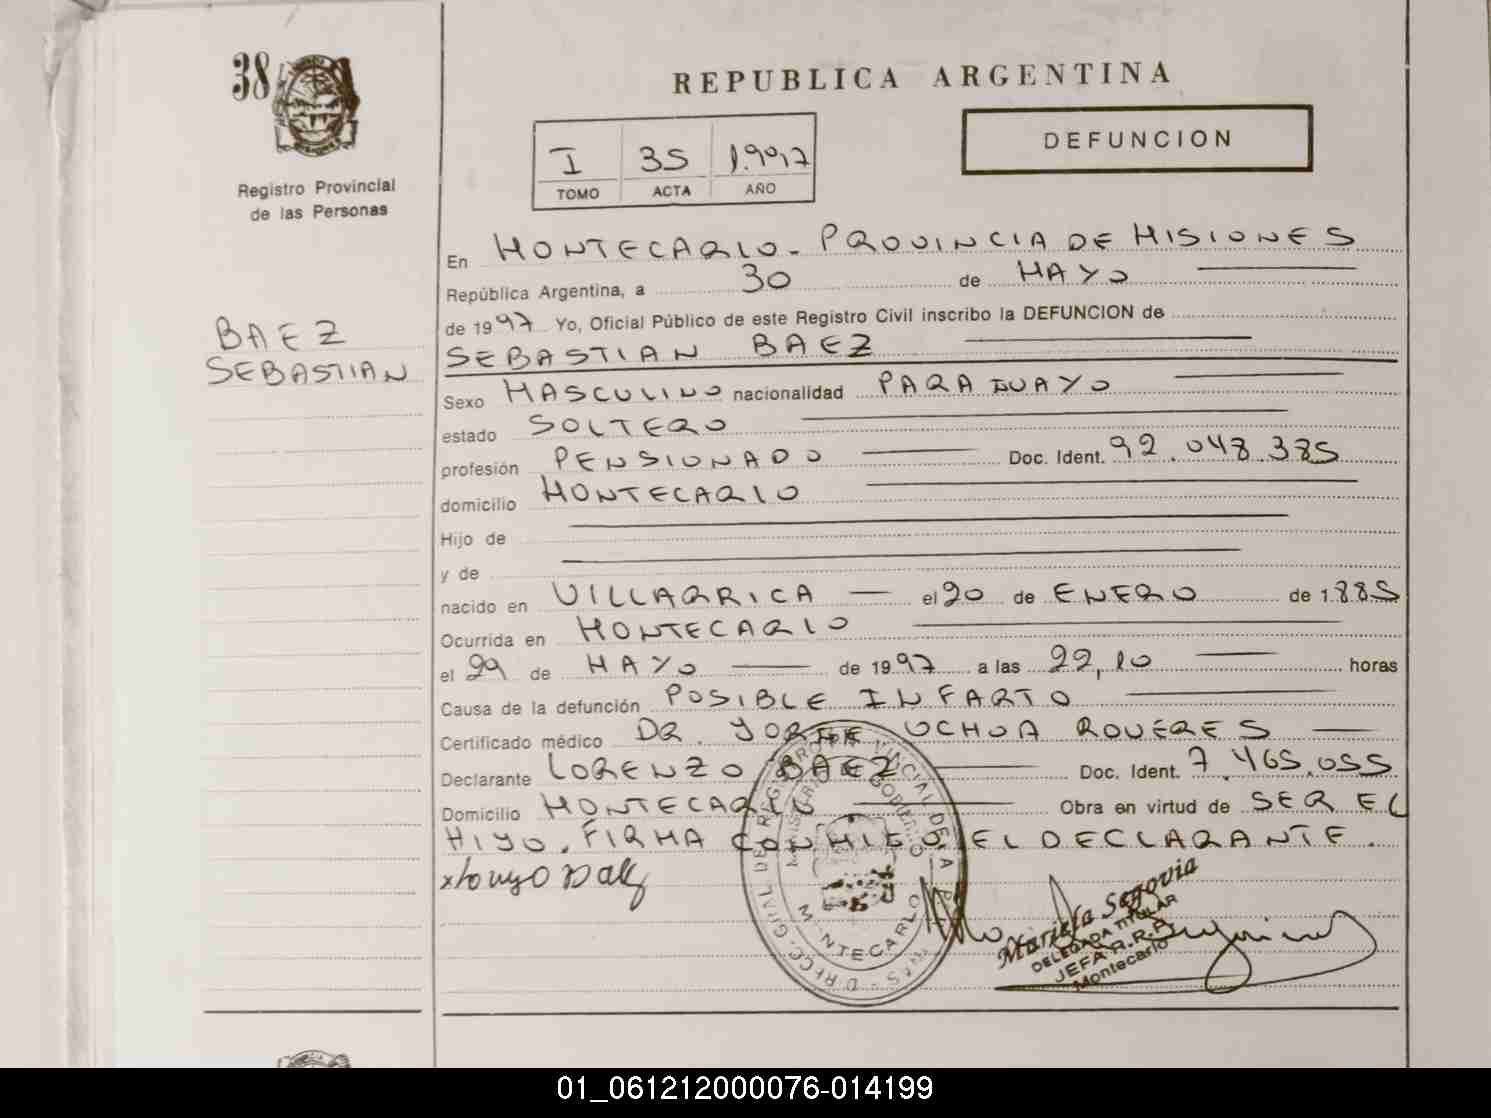 38
REPUBLICA ARGENTINA
DEFUNCION
I 35 1.997
TOMO ACTA AÑO
Registro Provincial
de las Personas
BAEZ
SEBASTIAN
En MONTECARLO - PROVINCIA DE MISIONES
República Argentina, a 30 de MAYO
de 1997 Yo, Oficial Público de este Registro Civil inscribo la DEFUNCION de
SEBASTIAN BAEZ
Sexo MASCULINO nacionalidad PARAGUAYO
estado SOLTERO
profesión PENSIONADO Doc. Ident. 92.048.385
domicilio MONTECARLO
Hijo de
y de
nacido en VILLARRICA el 20 de ENERO de 1.885
Ocurrida en MONTECARLO
el 29 de MAYO de 1997 a las 22,10 horas
Causa de la defunción POSIBLE INFARTO
Certificado médico DR. JORGE OCHOA ROVERES
Declarante LORENZO BAEZ Doc. Ident. 7.465.055
Domicilio MONTECARLO Obra en virtud de SER EL
HIJO. FIRMA CONMIGO EL DECLARANTE.
MONTECARLO
Mariela Segovia
DELEGADA TITULAR
JEFA R.R.P.
Montecarlo
01_061212000076-014199